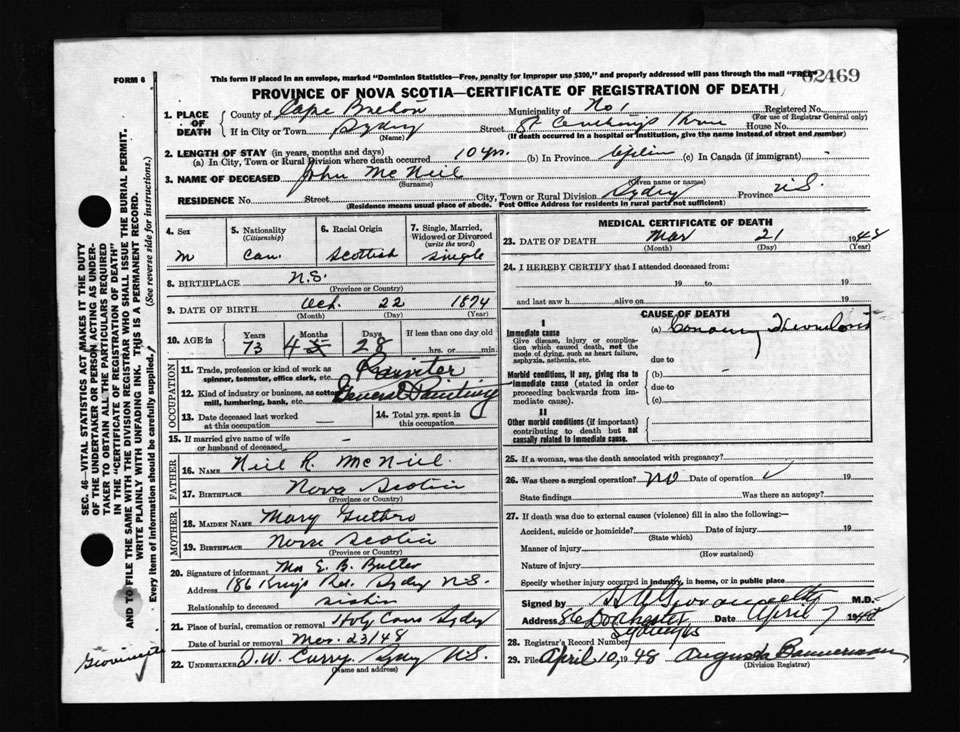 FORM 6
This form if placed in an envelope, marked "Dominion Statistics—Free, penalty for improper use $300," and properly addressed will pass through the mail "FREE"
02469
PROVINCE OF NOVA SCOTIA—CERTIFICATE OF REGISTRATION OF DEATH
1. PLACE OF DEATH
County of Cape Breton Municipality of No 1 Registered No.
(For use of Registrar General only)
If in City or Town Sydney Street St Anthony's Home House No.
(Name) (If death occurred in a hospital or institution, give the name instead of street and number)
2. LENGTH OF STAY (in years, months and days)
(a) In City, Town or Rural Division where death occurred 10 yrs. (b) In Province Life (c) In Canada (if immigrant) -
3. NAME OF DECEASED John McNeil
(Surname) (Given name or names)
RESIDENCE No. Street City, Town or Rural Division Sydney Province N.S.
(Residence means usual place of abode. Post Office Address for residents in rural parts not sufficient)
4. Sex
M
5. Nationality
(Citizenship)
Can.
6. Racial Origin
Scottish
7. Single, Married, Widowed or Divorced
(write the word)
Single
8. BIRTHPLACE N.S.
(Province or Country)
9. DATE OF BIRTH Oct. 22 1874
(Month) (Day) (Year)
10. AGE in
Years Months Days If less than one day old
73 4 28 hrs. or min.
OCCUPATION
11. Trade, profession or kind of work as spinner, teamster, office clerk, etc. Painter
12. Kind of industry or business, as cotton mill, lumbering, bank, etc. General Painting
13. Date deceased last worked at this occupation —
14. Total yrs. spent in this occupation
15. If married give name of wife or husband of deceased -
FATHER
16. NAME Neil R. McNeil
17. BIRTHPLACE Nova Scotia
(Province or Country)
MOTHER
18. MAIDEN NAME Mary Guthro
19. BIRTHPLACE Nova Scotia
(Province or Country)
20. Signature of informant Mrs E. B. Butler
Address 186 Kings Rd. Sydney N.S.
Relationship to deceased sister
21. Place of burial, cremation or removal Holy Cross Sydney
Date of burial or removal Mar. 23/48
22. UNDERTAKER T. W. Curry Sydney N.S.
(Name and address)
MEDICAL CERTIFICATE OF DEATH
23. DATE OF DEATH Mar 21 1948
(Month) (Day) (Year)
24. I HEREBY CERTIFY that I attended deceased from:
19 to 19
and last saw h alive on 19
CAUSE OF DEATH
I
Immediate cause
Give disease, injury or complication which caused death, not the mode of dying, such as heart failure, asphyxia, asthenia, etc.
(a) Coronary Thrombosis
due to
Morbid conditions, if any, giving rise to immediate cause (stated in order proceeding backwards from immediate cause).
(b)
due to
(c)
II
Other morbid conditions (if important) contributing to death but not causally related to immediate cause.
25. If a woman, was the death associated with pregnancy?
26. Was there a surgical operation? No Date of operation 19
State findings Was there an autopsy?
27. If death was due to external causes (violence) fill in also the following:—
Accident, suicide or homicide? Date of injury 19
(State which)
Manner of injury
(How sustained)
Nature of injury
Specify whether injury occurred in industry, in home, or in public place
Signed by M.D.
Address Dorchester Date April 7 1948
Sydney NS
28. Registrar's Record Number
29. Filed April 10, 1948 Augusta Bannerman
(Division Registrar)
SEC. 46—VITAL STATISTICS ACT MAKES IT THE DUTY
OF THE UNDERTAKER OR PERSON ACTING AS UNDER-
TAKER TO OBTAIN ALL THE PARTICULARS REQUIRED
IN THE "CERTIFICATE OF REGISTRATION OF DEATH"
AND TO FILE THE SAME WITH THE DIVISION REGISTRAR WHO SHALL ISSUE THE BURIAL PERMIT.
WRITE PLAINLY WITH UNFADING INK. THIS IS A PERMANENT RECORD.
Every item of information should be carefully supplied. (See reverse side for instructions.)